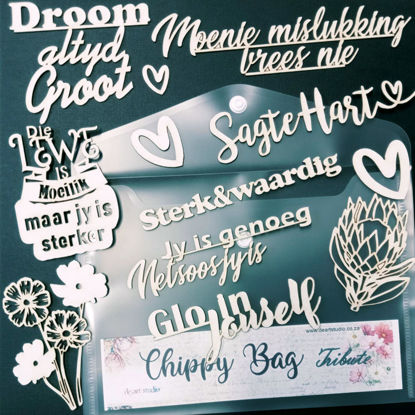 Droom
altyd
Groot
Moenie mislukking
vrees nie
SagteHart
Die
LEWE
is
Moeilik
maar jy is
sterker
Sterk&waardig
Jy is genoeg
Netsoosjyis
Glo in
Jouself
www.dcartstudio.co.za
Chippy Bag Tribute